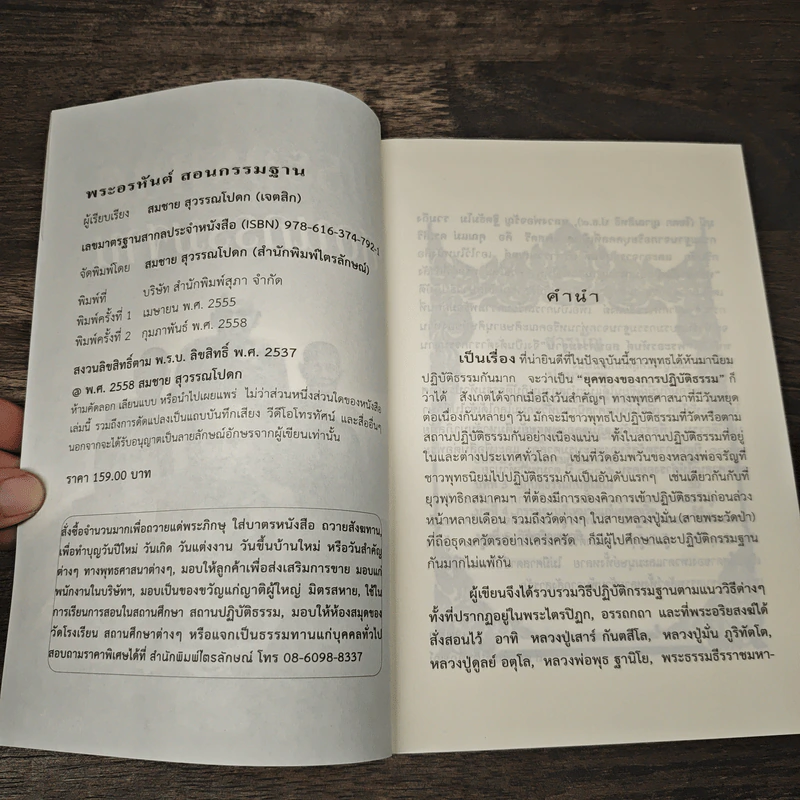 พระอรหันต์ สอนกรรมฐาน
ผู้เรียบเรียง สมชาย สุวรรณโปดก (เจตสิก)
เลขมาตรฐานสากลประจำหนังสือ (ISBN) 978-616-374-792-1
จัดพิมพ์โดย สมชาย สุวรรณโปดก (สำนักพิมพ์ไตรลักษณ์)
พิมพ์ที่ บริษัท สำนักพิมพ์สุภา จำกัด
พิมพ์ครั้งที่ 1 เมษายน พ.ศ. 2555
พิมพ์ครั้งที่ 2 กุมภาพันธ์ พ.ศ. 2558
สงวนลิขสิทธิ์ตาม พ.ร.บ. ลิขสิทธิ์ พ.ศ. 2537
@ พ.ศ. 2558 สมชาย สุวรรณโปดก
ห้ามคัดลอก เลียนแบบ หรือนำไปเผยแพร่ ไม่ว่าส่วนหนึ่งส่วนใดของหนังสือ
เล่มนี้ รวมถึงการดัดแปลงเป็นแถบบันทึกเสียง วีดีโอโทรทัศน์ และสื่ออื่นๆ
นอกจากจะได้รับอนุญาตเป็นลายลักษณ์อักษรจากผู้เขียนเท่านั้น
ราคา 159.00 บาท
สั่งซื้อจำนวนมากเพื่อถวายแด่พระภิกษุ ใส่บาตรหนังสือ ถวายสังฆทาน,
เพื่อทำบุญวันปีใหม่ วันเกิด วันแต่งงาน วันขึ้นบ้านใหม่ หรือวันสำคัญ
ต่างๆ ทางพุทธศาสนาต่างๆ, มอบให้ลูกค้าเพื่อส่งเสริมการขาย มอบแก่
พนักงานในบริษัทฯ, มอบเป็นของขวัญแก่ญาติผู้ใหญ่ มิตรสหาย, ใช้ใน
การเรียนการสอนในสถานศึกษา สถานปฏิบัติธรรม, มอบให้ห้องสมุดของ
วัดโรงเรียน สถานศึกษาต่างๆ หรือแจกเป็นธรรมทานแก่บุคคลทั่วไป
สอบถามราคาพิเศษได้ที่ สำนักพิมพ์ไตรลักษณ์ โทร 08-6098-8337
คำนำ
เป็นเรื่อง ที่น่ายินดีที่ในปัจจุบันนี้ชาวพุทธได้หันมานิยม
ปฏิบัติธรรมกันมาก จะว่าเป็น “ยุคทองของการปฏิบัติธรรม” ก็
ว่าได้ สังเกตได้จากเมื่อถึงวันสำคัญๆ ทางพุทธศาสนาที่มีวันหยุด
ต่อเนื่องกันหลายๆ วัน มักจะมีชาวพุทธไปปฏิบัติธรรมที่วัดหรือตาม
สถานปฏิบัติธรรมกันอย่างเนืองแน่น ทั้งในสถานปฏิบัติธรรมที่อยู่
ในและต่างประเทศทั่วโลก เช่นที่วัดอัมพวันของหลวงพ่อจรัญที่
ชาวพุทธนิยมไปปฏิบัติธรรมกันเป็นอันดับแรกๆ เช่นเดียวกันกับที่
ยุวพุทธิกสมาคมฯ ที่ต้องมีการจองคิวการเข้าปฏิบัติธรรมก่อนล่วง
หน้าหลายเดือน รวมถึงวัดต่างๆ ในสายหลวงปู่มั่น (สายพระวัดป่า)
ที่ถือธุดงควัตรอย่างเคร่งครัด ก็มีผู้ไปศึกษาและปฏิบัติกรรมฐาน
กันมากไม่แพ้กัน
ผู้เขียนจึงได้รวบรวมวิธีปฏิบัติกรรมฐานตามแนววิธีต่างๆ
ทั้งที่ปรากฏอยู่ในพระไตรปิฎก, อรรถกถา และที่พระอริยสงฆ์ได้
สั่งสอนไว้ อาทิ หลวงปู่เสาร์ กันตสีโล, หลวงปู่มั่น ภูริทัตโต,
หลวงปู่ดูลย์ อตุโล, หลวงพ่อพุธ ฐานิโย, พระธรรมธีรราชมหา-